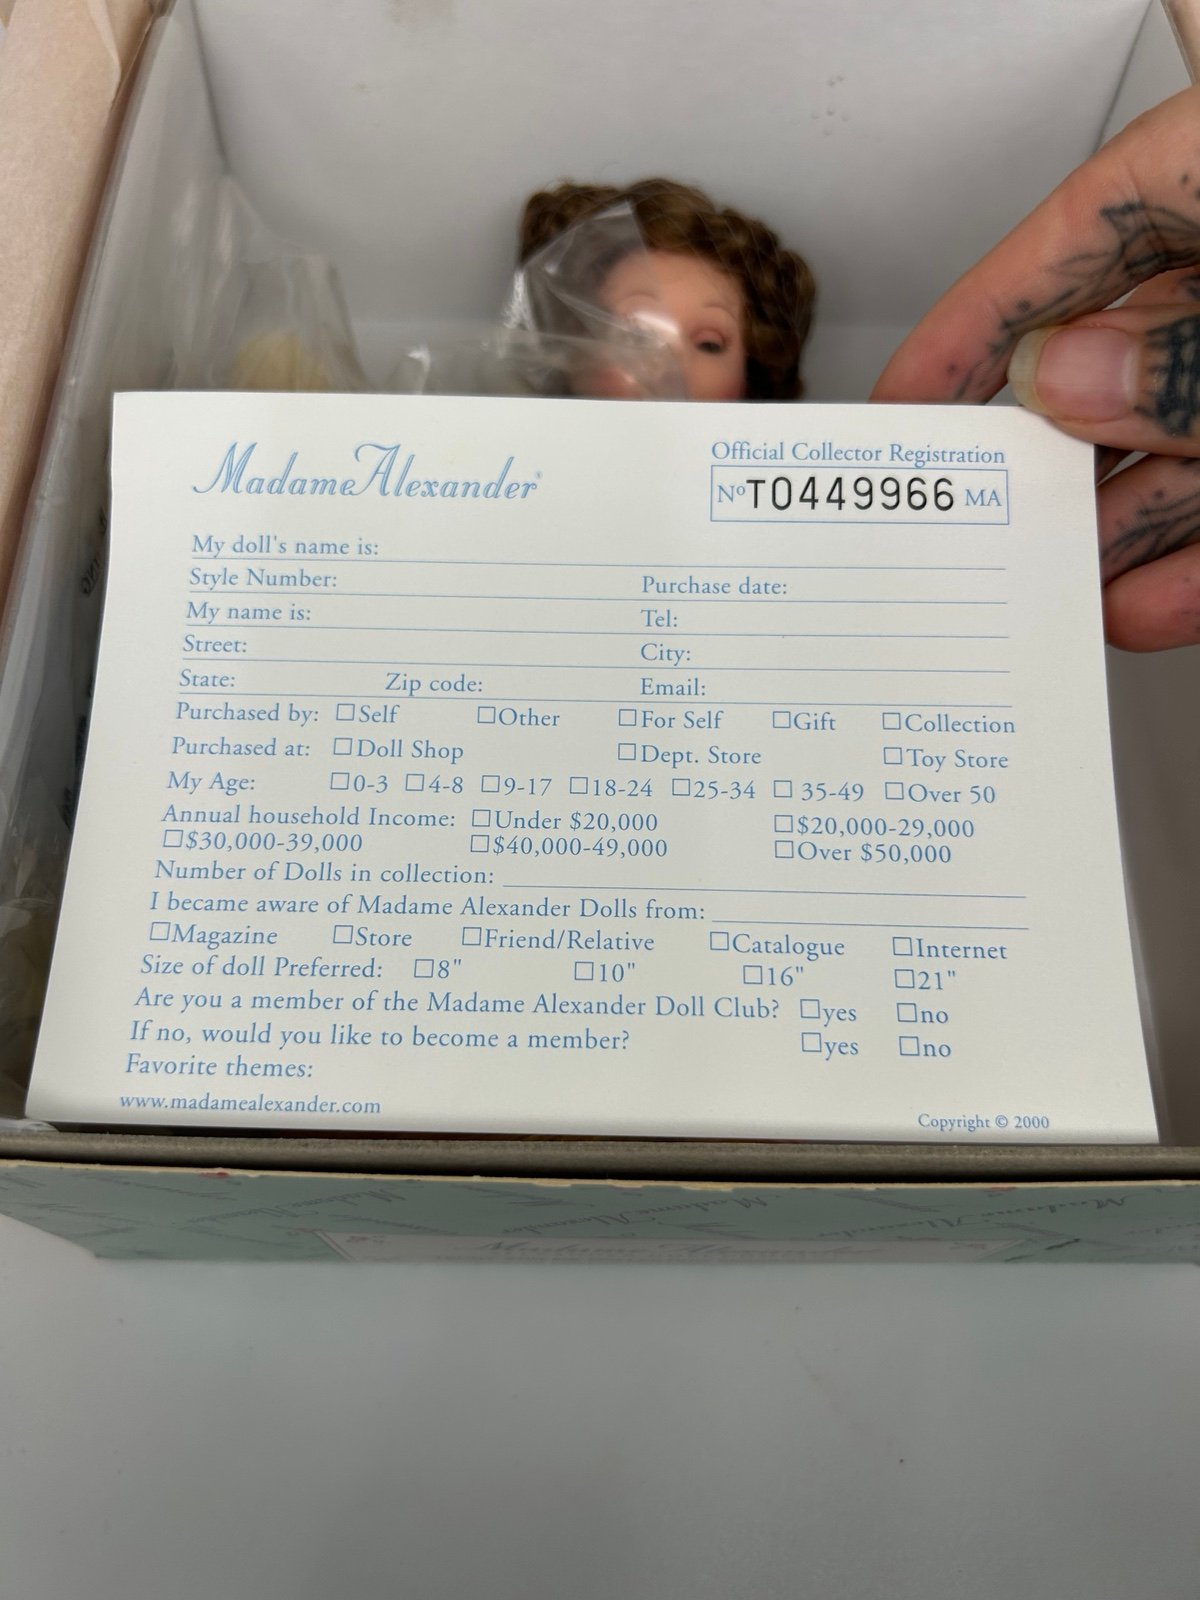 Madame Alexander®
Official Collector Registration
Nº T0449966 MA
My doll's name is:
Style Number: Purchase date:
My name is: Tel:
Street: City:
State: Zip code: Email:
Purchased by: □Self □Other □For Self □Gift □Collection
Purchased at: □Doll Shop □Dept. Store □Toy Store
My Age: □0-3 □4-8 □9-17 □18-24 □25-34 □ 35-49 □Over 50
Annual household Income: □Under $20,000 □$20,000-29,000
□$30,000-39,000 □$40,000-49,000 □Over $50,000
Number of Dolls in collection:
I became aware of Madame Alexander Dolls from:
□Magazine □Store □Friend/Relative □Catalogue □Internet
Size of doll Preferred: □8" □10" □16" □21"
Are you a member of the Madame Alexander Doll Club? □yes □no
If no, would you like to become a member? □yes □no
Favorite themes:
www.madamealexander.com
Copyright © 2000
Madame Alexander